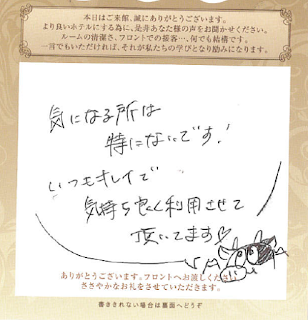 本日はご来館、誠にありがとうございます。
より良いホテルにする為に、是非あなた様の声をお聞かせください。
ルームの清潔さ、フロントでの接客…、何でも結構です。
一言でもいただければ、それが私たちの学びとなり励みになります。
気になる所は
特にないです!
いつもキレイで
気持ち良く利用させて
頂いてます♡
ありがとうございます。フロントへお渡しください。
ささやかなお礼をさせていただきます。
書ききれない場合は裏面へどうぞ